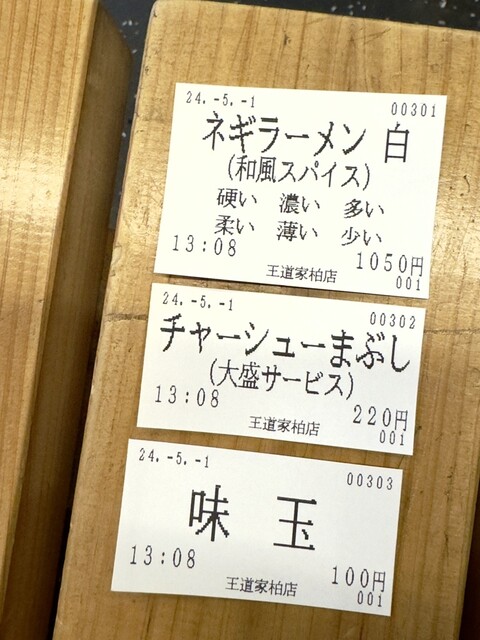 24.-5.-1 00301
ネギラーメン 白
(和風スパイス)
硬い 濃い 多い
柔い 薄い 少い
13:08 1050円
王道家柏店 001
24.-5.-1 00302
チャーシューまぶし
(大盛サービス)
13:08 220円
王道家柏店 001
24.-5.-1 00303
味 玉
13:08 100円
王道家柏店 001